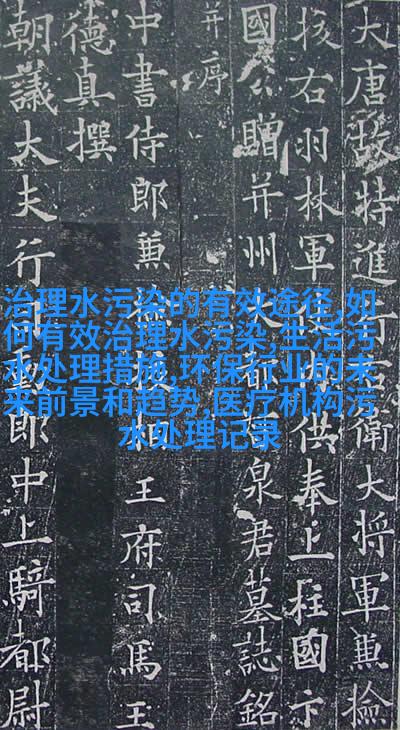 大唐故特進行右衛大將軍兼檢
挍右羽林軍仗內供奉上柱國卞
國公贈并州大都督泉君墓誌銘
并序
中書侍郎兼檢校相王府司馬王
德真撰
朝議大夫行司勳郎中上騎都尉
治理水污染的有效途径,如
何有效治理水污染,生活污
水处理措施,环保行业的未
来前景和趋势,医疗机构污
水处理记录